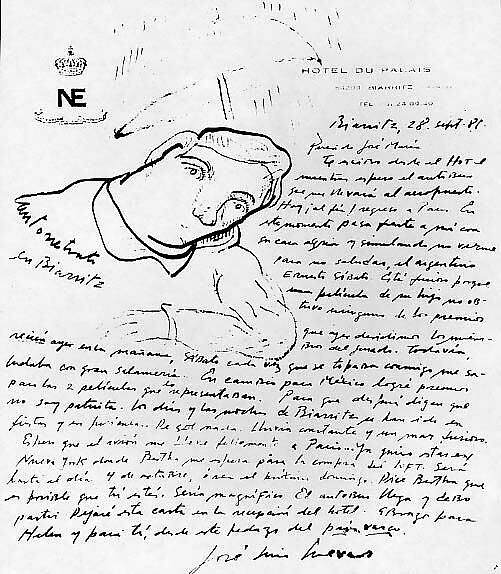 NE
HOTEL DU PALAIS
64200 BIARRITZ
TEL
Biarritz, 28. sept. 81.
de José María
Te escribo desde el Hotel
mientras espero el autobus
que me llevará al aeropuerto.
Hoy, ¡al fin! regreso a París. En
este momento pasa frente a mí con
su cara agria y simulando no verme
para no saludar, el argentino
Ernesto Sábato. Está furioso porque
una película de su hijo no ob-
tuvo ninguno de los premios
que ayer decidimos los miem-
bros del jurado. Todavía,
ayer en la mañana, Sábato cada vez que se topaba conmigo me sa-
ludaba con gran En cambio para México logré premios
para las 2 películas que lo representaban. Para que después digan que
no soy patriota. Los días y las noches de Biarritz se han ido en
fiestas y en Lluvia constante y un mar furioso.
Espero que el avión me lleve felizmente a París. Ya quiero estar en
Nueva York donde Bertha me espera para la compra del loft. Será
hasta el día 4 de octubre, ó sea el próximo domingo. Dice Bertha que
es posible que tú estés. Sería magnífico. El autobus llega y debo
partir. Dejaré esta carta en la recepción del hotel. Abrazo para
Helen y para tí, desde este pedazo del país vasco.
José Luis Cuevas
Autorretrato
en Biarritz